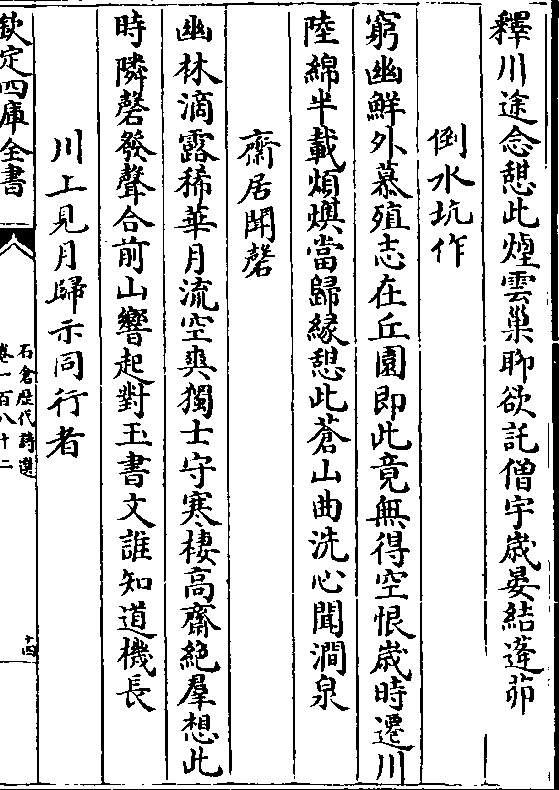 釋川途念憇此煙雲巢聊欲託僧宇歳晏結蓬茆
倒水坑作
窮幽鮮外慕殖志在丘園即此竟無得空恨歳時遷川
陸綿半載煩燠當歸緣憩此蒼山曲洗心聞澗泉
齋居聞磬
幽林滴露稀華月流空爽獨士守寒棲高齋絶羣想此
時隣磬發聲合前山響起對玉書文誰知道機長
川上見月歸示同行者
欽定四庫全書
石倉歴代詩選
卷一百八十二
十四